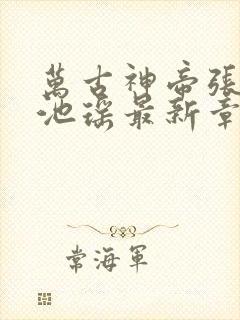 萬古神帝張
池瑤最新章
常海軍